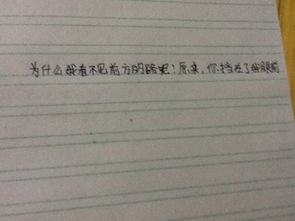 为什么我看不见前方的路呢！原来，你挡住了我眼前